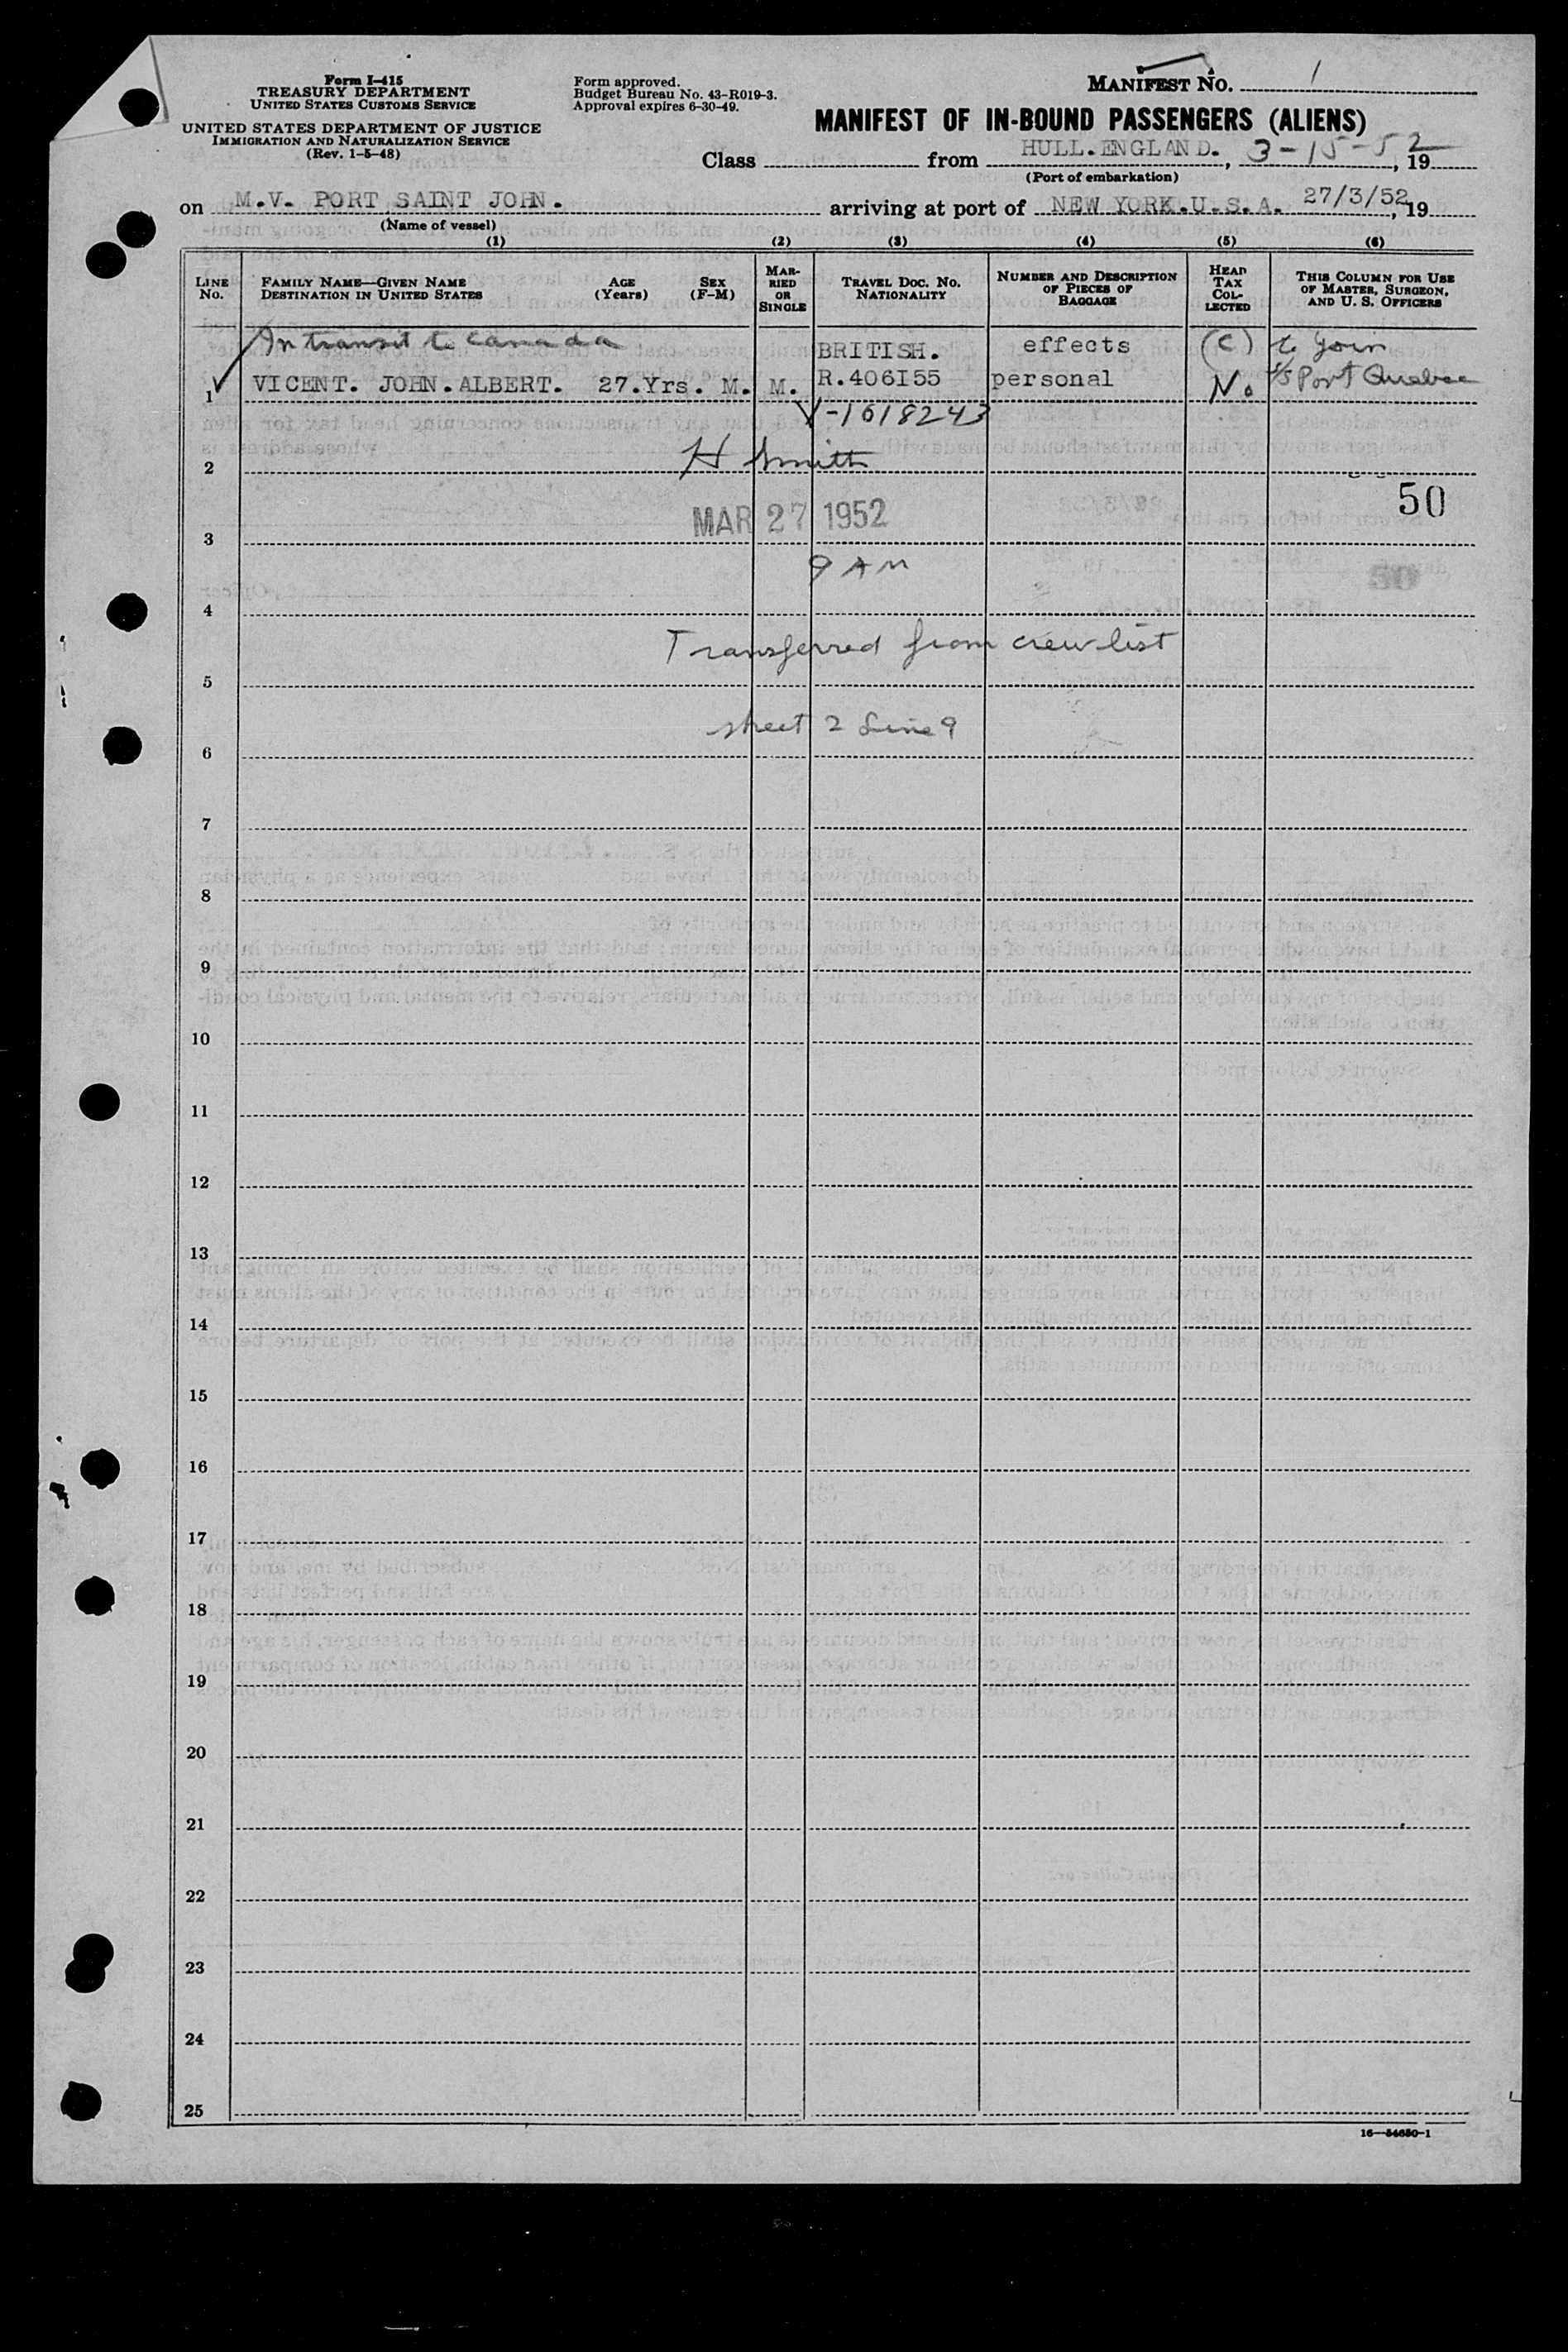 Form I-415
TREASURY DEPARTMENT
UNITED STATES CUSTOMS SERVICE
UNITED STATES DEPARTMENT OF JUSTICE
IMMIGRATION AND NATURALIZATION SERVICE
(Rev. 1-5-48)
Form approved.
Budget Bureau No. 43-R019-3.
Approval expires 6-30-49.
MANIFEST NO. 1
MANIFEST OF IN-BOUND PASSENGERS (ALIENS)
Class from HULL.ENGLAND. , 3-15-52, 19
(Port of embarkation)
on M.V. PORT SAINT JOHN. arriving at port of NEW YORK.U.S.A. 27/3/52, 19
(Name of vessel)
(1) (2) (3) (4) (5) (6)
LINE No.
FAMILY NAME—GIVEN NAME
DESTINATION IN UNITED STATES
AGE (Years)
SEX (F-M)
MARRIED OR SINGLE
TRAVEL DOC. NO. NATIONALITY
NUMBER AND DESCRIPTION OF PIECES OF BAGGAGE
HEAD TAX COLLECTED
THIS COLUMN FOR USE OF MASTER, SURGEON, AND U. S. OFFICERS
In transit to Canada BRITISH. effects (C) to join
1 VICENT. JOHN.ALBERT. 27.Yrs. M. M. R.406I55 personal No S/S Port Quebec
V-1618243
2 H Smith
50
3 MAR 27 1952
9 AM
4
Transferred from crew list
5
sheet 2 Line 9
6
7
8
9
10
11
12
13
14
15
16
17
18
19
20
21
22
23
24
25
16—54650-1